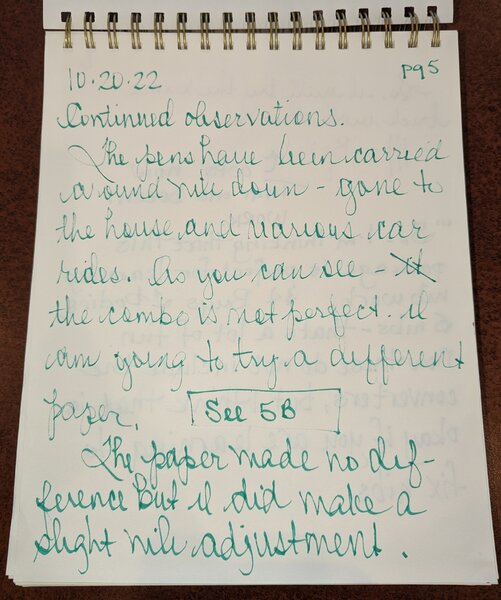 10·20·22
pg 5
Continued observations.
The pens have been carried
around nib down - gone to
the house and various car
rides. As you can see - it
the combo is not perfect. I
am going to try a different
paper.
See 5B
The paper made no dif-
ference but I did make a
slight nib adjustment.